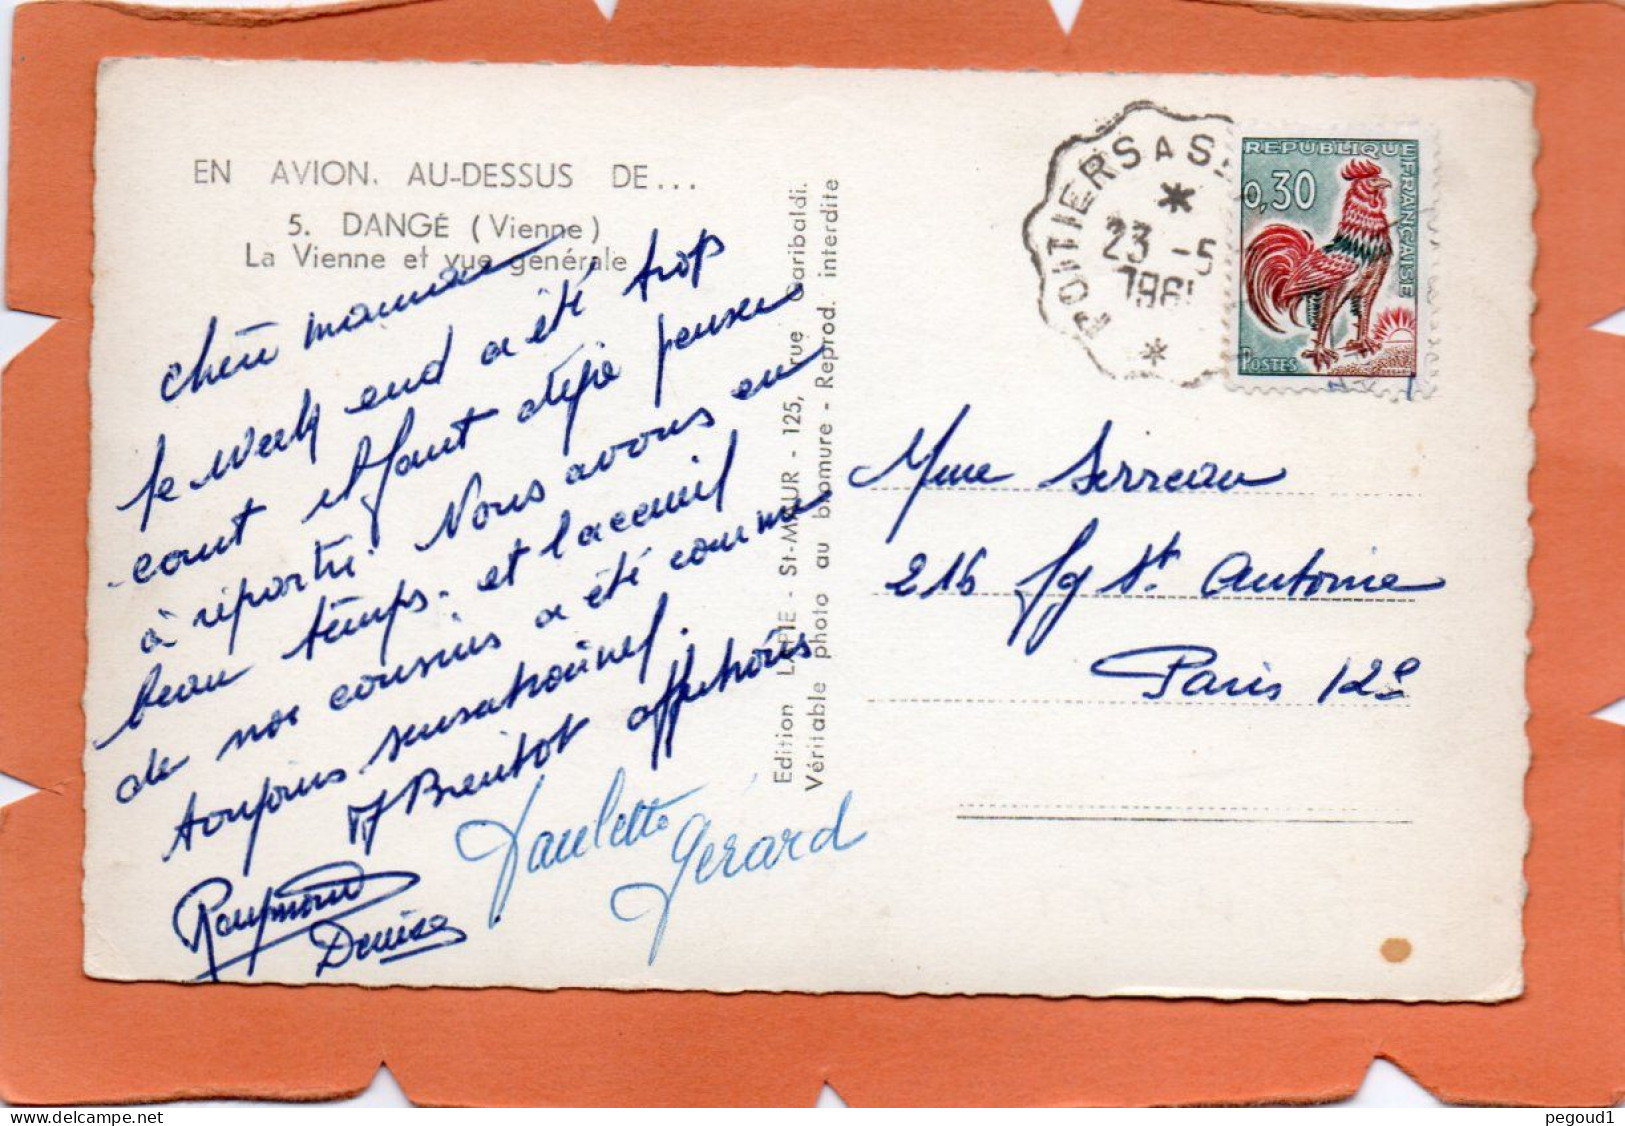 EN AVION. AU-DESSUS DE...
5. DANGÉ (Vienne)
La Vienne et vue générale
chère maman
le week end a été trop
court il faut déjà penser
à repartir. Nous avons eu
beau temps. et l'accueil
de nos cousins a été comme
toujours sensationnel.
A Bientôt affectueusement
Raymond
Denise
Paulette
Gérard
Edition LAPIE - St-MAUR - 125, rue Garibaldi.
Véritable photo au bromure - Reprod. interdite
POITIERS A S
23 -5
196
REPUBLIQUE FRANÇAISE
0,30
POSTES
Mme Serreau
216 fg St Antoine
Paris 12e
pegoud1